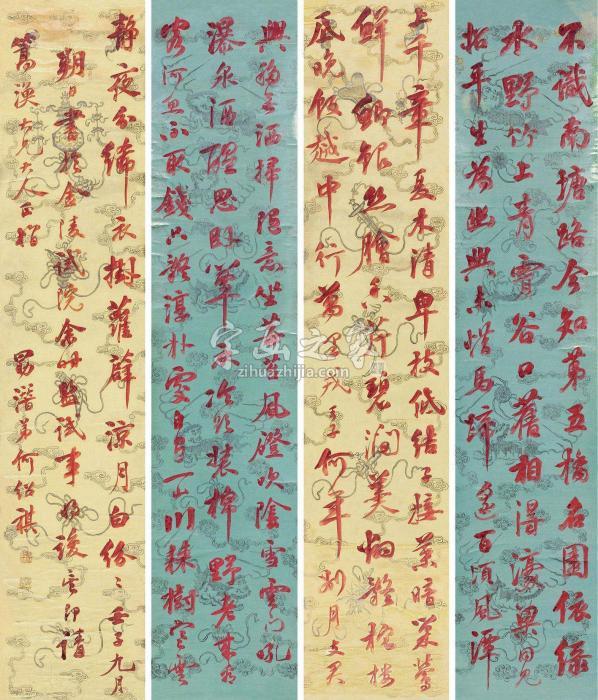 不識南塘路今知第五橋名園依綠
水野竹上青霄谷口舊相得濠梁同見
招平生為幽興未惜馬蹄遙百頃風潭
上千章夏木清卑枝低結子接葉暗巢鶯
鮮鯽銀絲膾香芹碧澗羹翻疑柁樓
底晚飯越中行萬里戎王子何年別月支異
興移無洒掃隨意坐莓苔風磴吹陰雪雲門吼
瀑泉酒醒思臥簟衣冷欲裝棉野老來看
客河魚不取錢只疑淳朴處自有一山川棘樹寒雲
靜夜分絺衣掛蘿薜涼月白紛紛壬子九月
朔日書於金陵試院余時監試事請
大兄大人正 弟何紹祺
字画之家
zihuazhijia.com